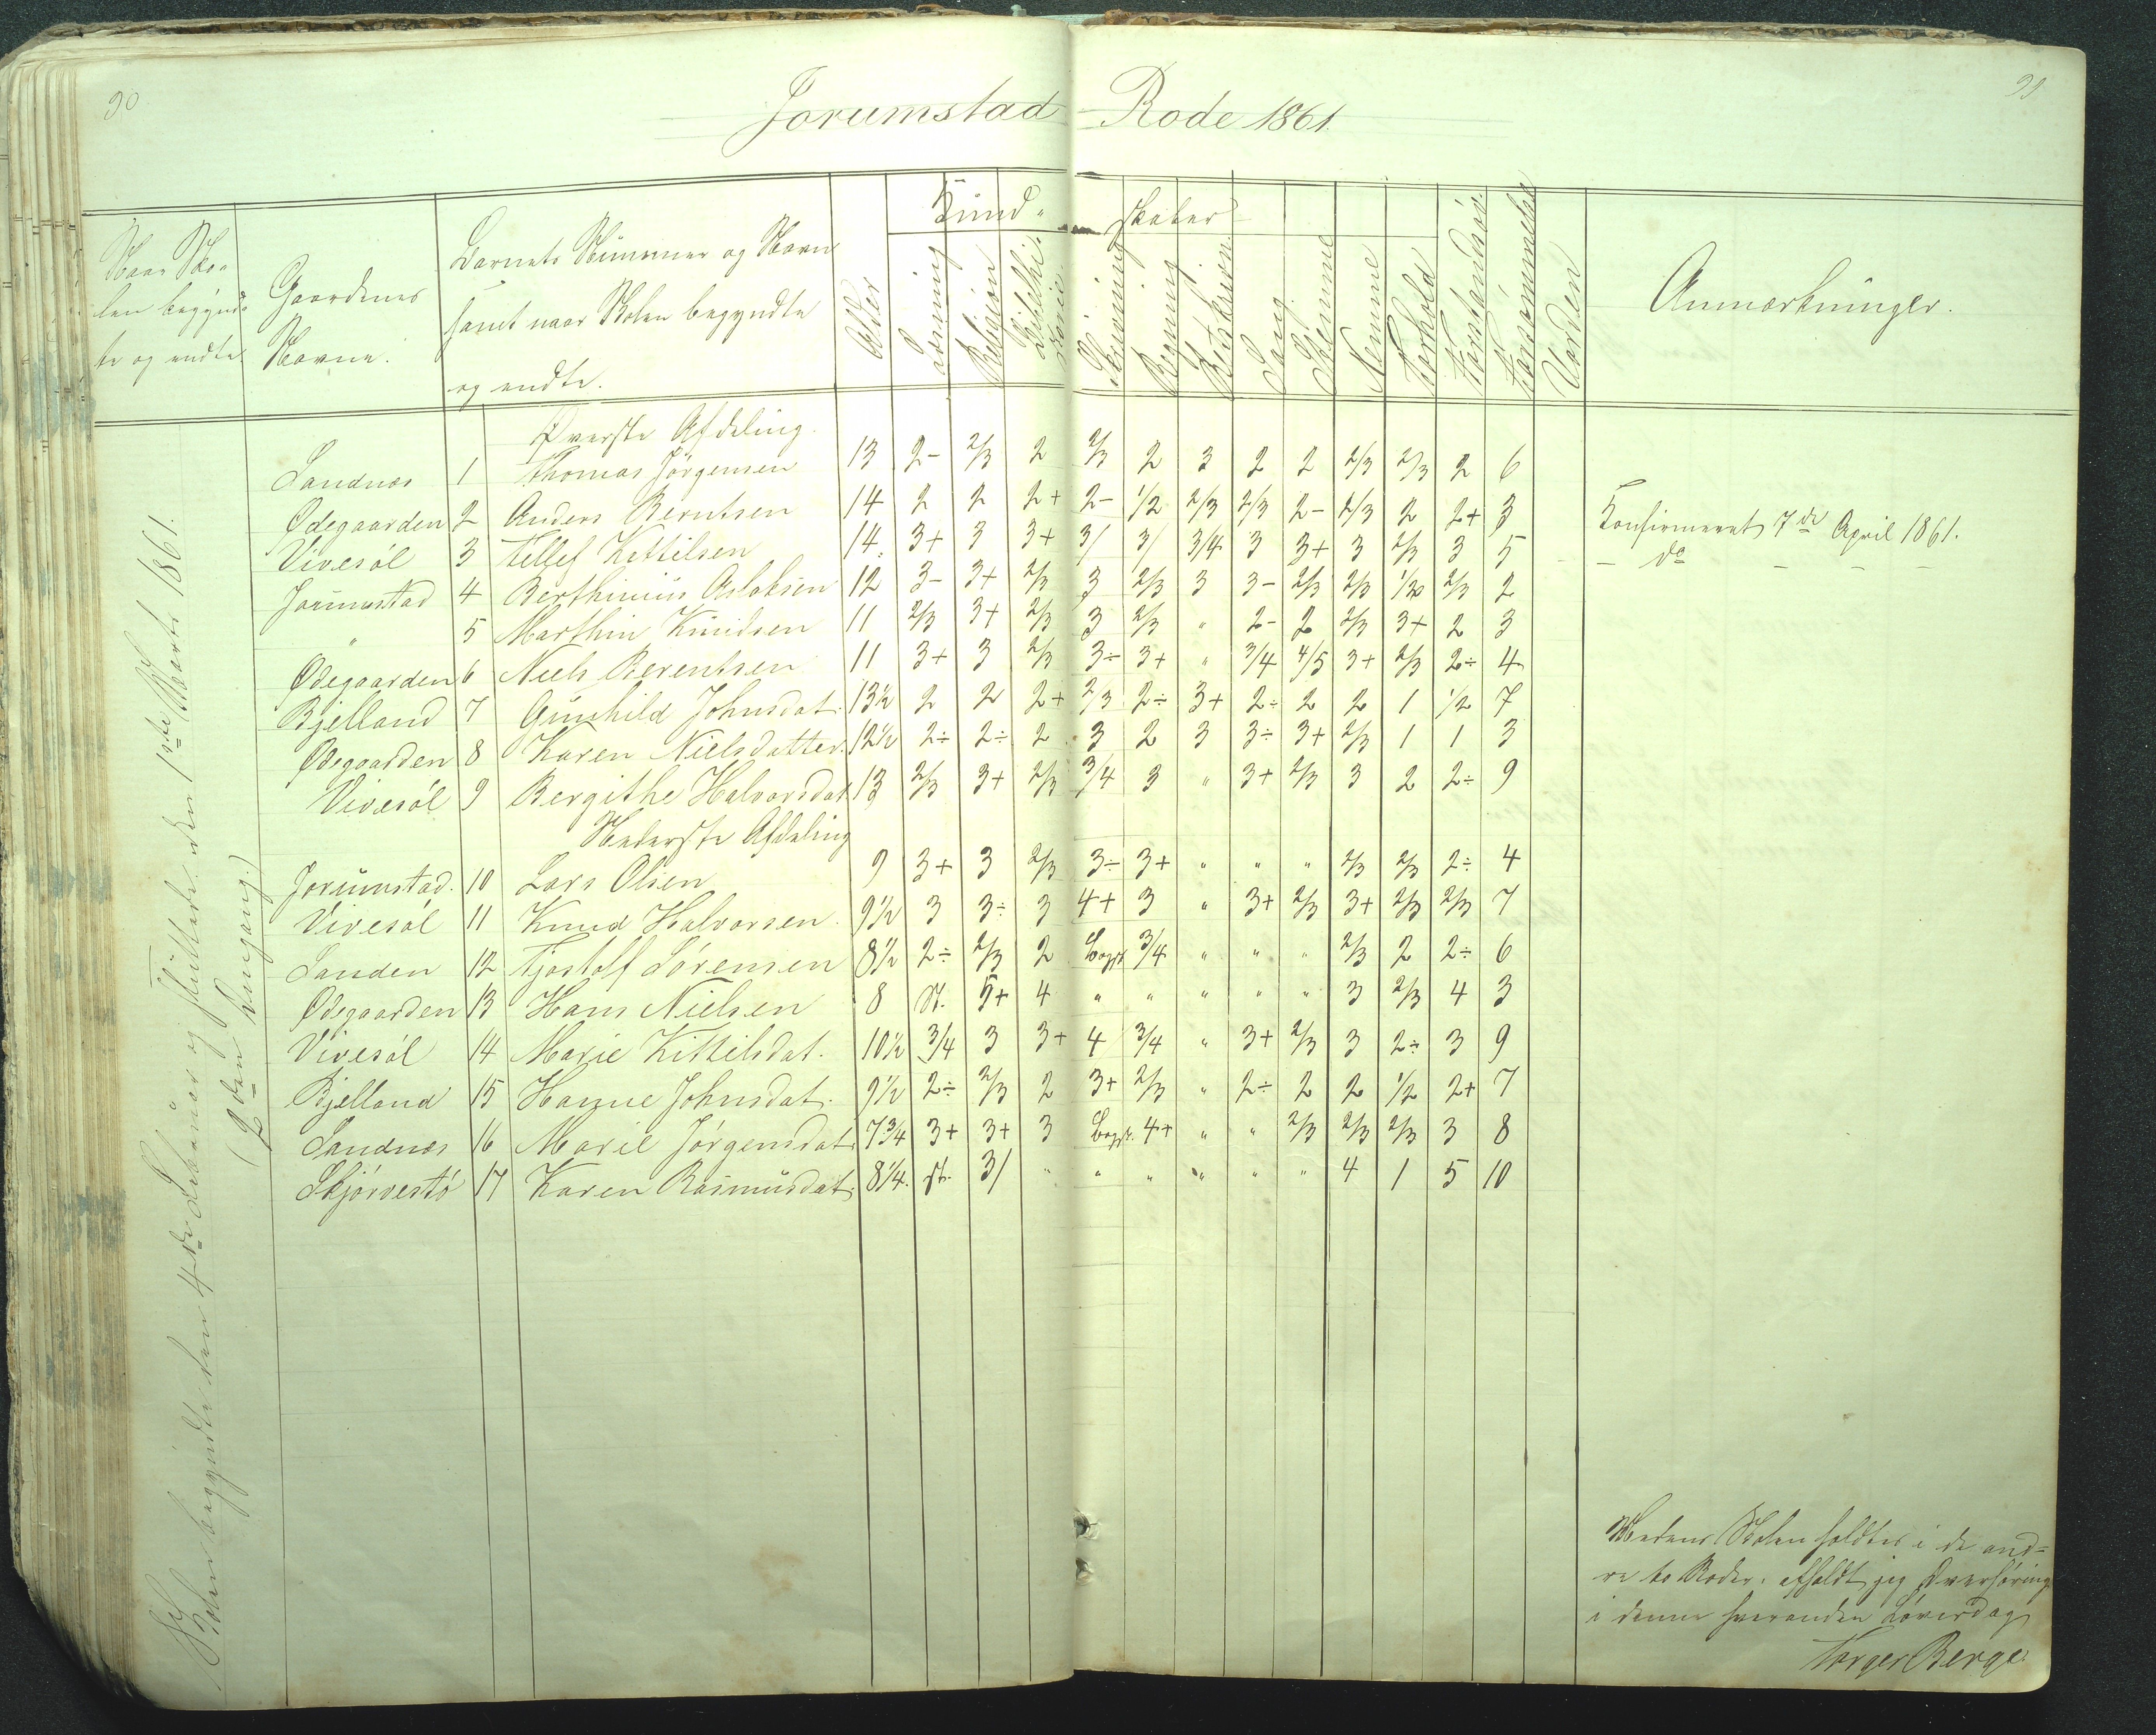 90
91
Jorumstad Rode 1861.
Naar Sko-
len begynd-
te og endte.
Gaardenes
Navne.
Barnets Nummer og Navn
samt naar Skolen begyndte
og endte.
Alder
Kund-
skaber
Læsning
Religion
Skrivning
Regning
Sang
Nemme
Forhold
Forsømmelse
Anmærkninger.
Skolen begyndte den 4de Februar og sluttede den 1ste Marts 1861.
(2den Omgang.)
Øverste Afdeling.
Sandnæs 1 Thomas Jörgensen 13 2- 2/3 2 2/3 2 3 2 2 2/3 2/3 2 6
Ödegaarden 2 Anders Berntsen 14 2 2 2+ 2- 1/2 2/3 2/3 2- 2/3 2 2+ 3 Konfirmeret 7de April 1861.
Vivesöl 3 Tellef Kittilsen 14. 3+ 3 3+ 3/ 3/ 3/4 3 3+ 3 2/3 3 5 – do – – –
Jorumstad 4 Berthinius Aslaksen 12 3- 3+ 2/3 3 2/3 3 3- 2/3 2/3 2/3 2
" 5 Marthin Knudsen 11 2/3 3+ 2/3 3 2/3 " 2- 2 2/3 3+ 2 3
Ödegaarden 6 Niels Berentsen 11 3+ 3 2/3 3÷ 3+ " 3/4 4/5 3+ 2/3 2÷ 4
Bjelland 7 Gunhild Johnsdat. 13½ 2 2 2+ 2/3 2÷ 3+ 2÷ 2 2 1 1/2 7
Ödegaarden 8 Karen Nielsdatter. 12½ 2÷ 2÷ 2 3 2 3 3÷ 3+ 2/3 1 1 3
Vivesöl 9 Bergithe Halvorsdat. 13 2/3 3+ 2/3 3/4 3 " 3+ 2/3 3 2 2÷ 9
Nederste Afdeling
Jorumstad. 10 Lars Olsen 9 3+ 3 2/3 3÷ 3+ " " " 2/3 2/3 2÷ 4
Vivesöl 11 Knud Halvorsen. 9½ 3 3÷ 3 4+ 3 " 3+ 2/3 3+ 2/3 2/3 7
Sanden 12 Tjostolf Sörensen 8½ 2÷ 2/3 2 Begyt 3/4 " " " 2/3 2 2÷ 6
Ödegaarden 13 Hans Nielsen 8 St. 5+ 4 " " " " " 3 2/3 4 3
Vivesöl 14 Marie Kittilsdat. 10½ 3/4 3 3+ 4 3/4 " 3+ 2/3 3 2÷ 3 9
Bjelland 15 Hanne Johnsdat. 9½ 2÷ 2/3 2 3+ 2/3 " 2÷ 2 2 1/2 2+ 7
Sandnæs 16 Marie Jörgensdat. 7¾ 3+ 3+ 3 Begyt. 4+ " " 2/3 2/3 2/3 3 8
Skjörvestö 17 Karen Rasmusdat. 8¼. St. 3/ " " " " " " 4 1 5 10
Medens Skolen holdtes i de and-
re to Roder, afholdt jeg Overhöring
i denne hveranden Löverdag
Torger Berge.